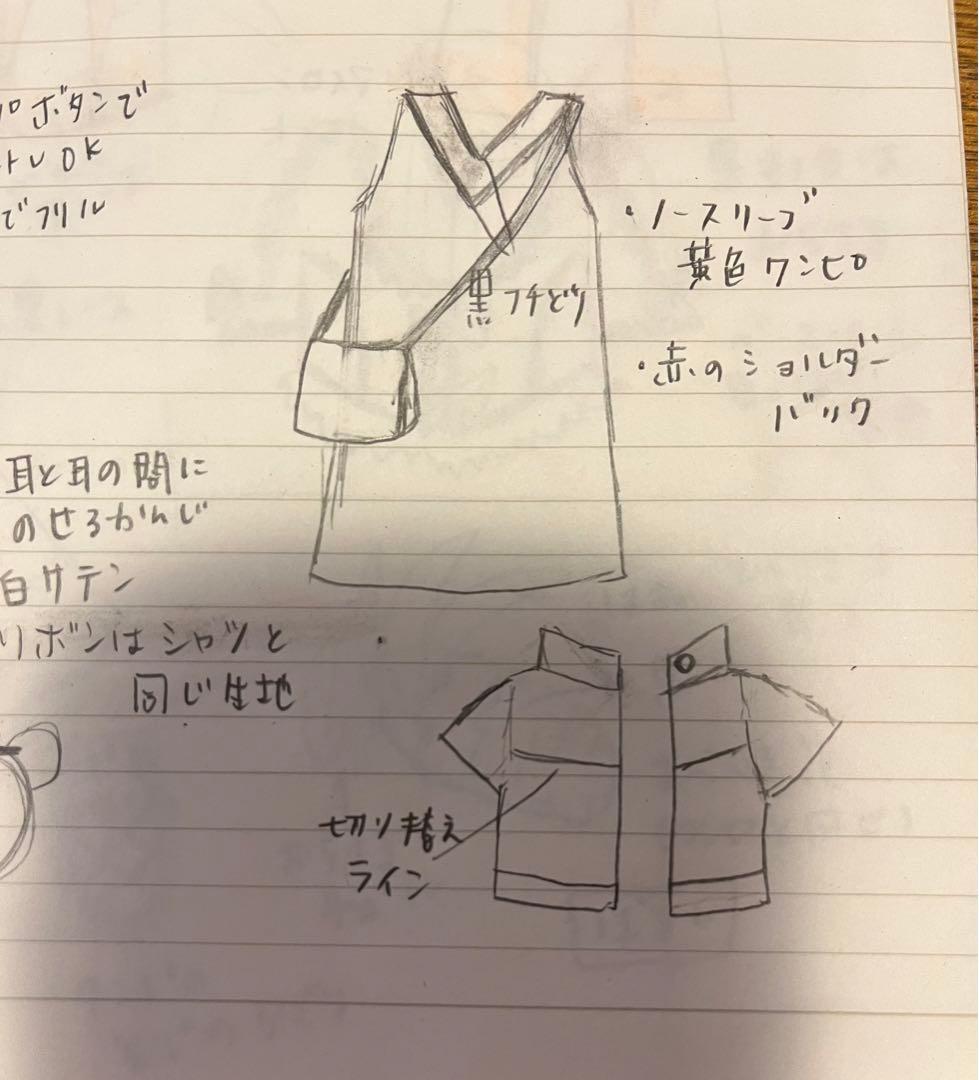 ボタンで
トレOK
でフリル
・ノースリーブ
黄色ワンピ
黒フチどり
・赤のショルダー
バック
耳と耳の間に
のせるかんじ
白サテン
リボンはシャツと
同じ生地
切り替え
ライン